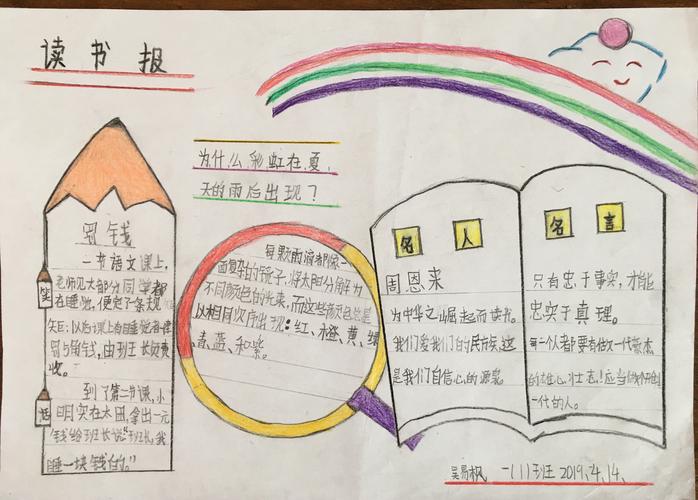 读书报
为什么彩虹在夏
天的雨后出现？
罚钱
一节语文课上，
老师见大部分同学都
在睡觉，便定了条规
矩：以后课上有睡觉者律
罚5角钱，由班长负责
收。
到了第二节课，小
明实在太困，拿出一元
钱给班长说"班长，我
睡一块钱的。"
笑
话
每颗雨滴都像一
面复杂的镜子，将太阳分解为
不同颜色的光束，而这些颜色总是
以相同次序出现：红、橙、黄、绿
青、蓝、和紫。
名人
周恩来
为中华之崛起而读书。
我们爱我们的民族，这
是我们自信心的源泉。
名言
只有忠于事实，才能
忠实于真理。
每一个人都要有做一代豪杰
的雄心壮志！应当做个开创
一代的人。
吴易枫 一(1)班 2019.4.14.